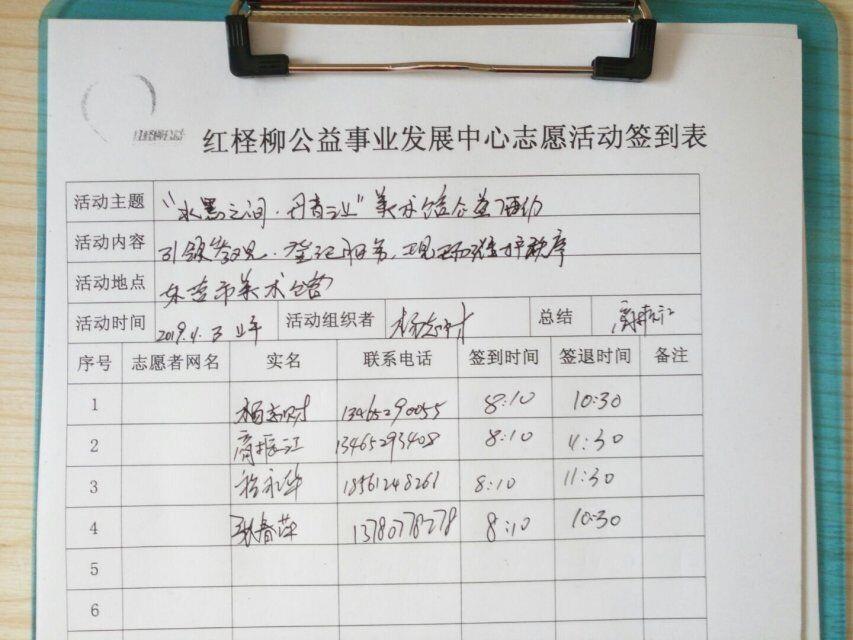 红柽柳公益
红柽柳公益事业发展中心志愿活动签到表
活动主题 “水墨之间·丹青之业”美术馆公益活动
活动内容 引领参观、登记服务、现场维护秩序
活动地点 东营市美术馆
活动时间 2019.4.3 上午 活动组织者 杨志财 总结 高振江
序号 志愿者网名 实名 联系电话 签到时间 签退时间 备注
1 杨志财 13465290055 8:10 10:30
2 高振江 13465293408 8:10 11:30
3 永华 18561248261 8:10 11:30
4 春萍 13780778278 8:10 10:30
5
6